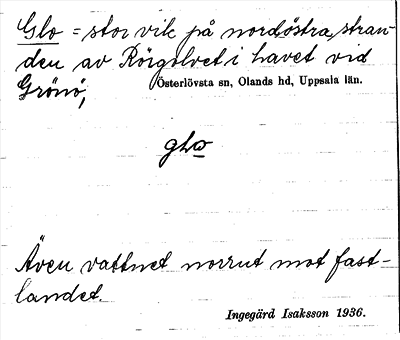 Glo = stor vik på nordöstra stran-
den av Rörgolvet i havet vid
Grönö,
Österlövsta sn, Olands hd, Uppsala län.
glω
Även vattnet norrut mot fast-
landet.
Ingegärd Isaksson 1936.